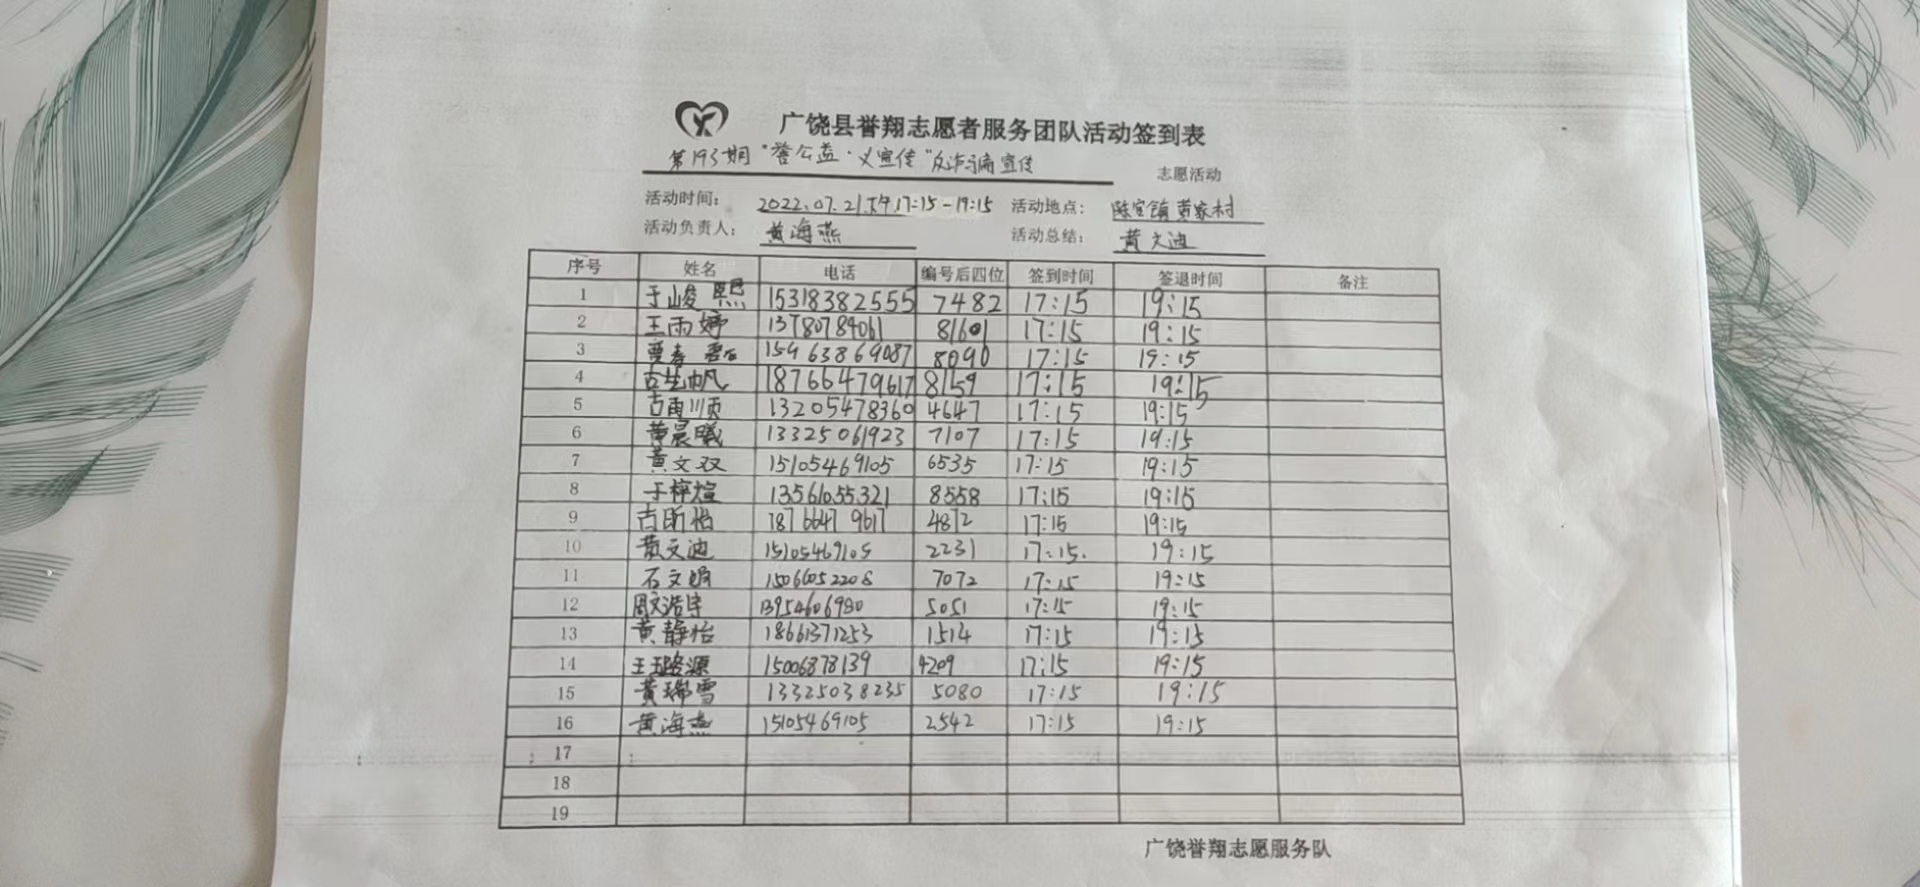 广饶县誉翔志愿者服务团队活动签到表
第193期"誉公益·义宣传"反诈骗宣传 志愿活动
活动时间: 2022.07.21.下午17:15-19:15 活动地点: 陈官镇黄家村
活动负责人: 黄海燕 活动总结: 黄文迪
序号 姓名 电话 编号后四位 签到时间 签退时间 备注
1 于峻熙 15318382555 7482 17:15 19:15
2 王雨婷 13780784061 81601 17:15 19:15
3 15963869087 8090 17:15 19:15
4 古生帆 18766479617 8159 17:15 19:15
5 古雨顺 13205478360 4647 17:15 19:15
6 黄晨曦 13325061923 7107 17:15 19:15
7 黄文双 15105469105 6535 17:15 19:15
8 于梓煊 13561055321 8558 17:15 19:15
9 古昕怡 18766479617 4872 17:15 19:15
10 黄文迪 15105469105 2231 17:15. 19:15
11 石文娟 15066052208 7072 17:15 19:15
12 周文浩宇 13954606980 5051 17:15 19:15
13 黄静怡 18661371253 1514 17:15 19:15
14 王璐源 15006878139 4209 17:15 19:15
15 黄瑞雪 13325038235 5080 17:15 19:15
16 黄海燕 15105469105 2542 17:15 19:15
17
18
19
广饶誉翔志愿服务队